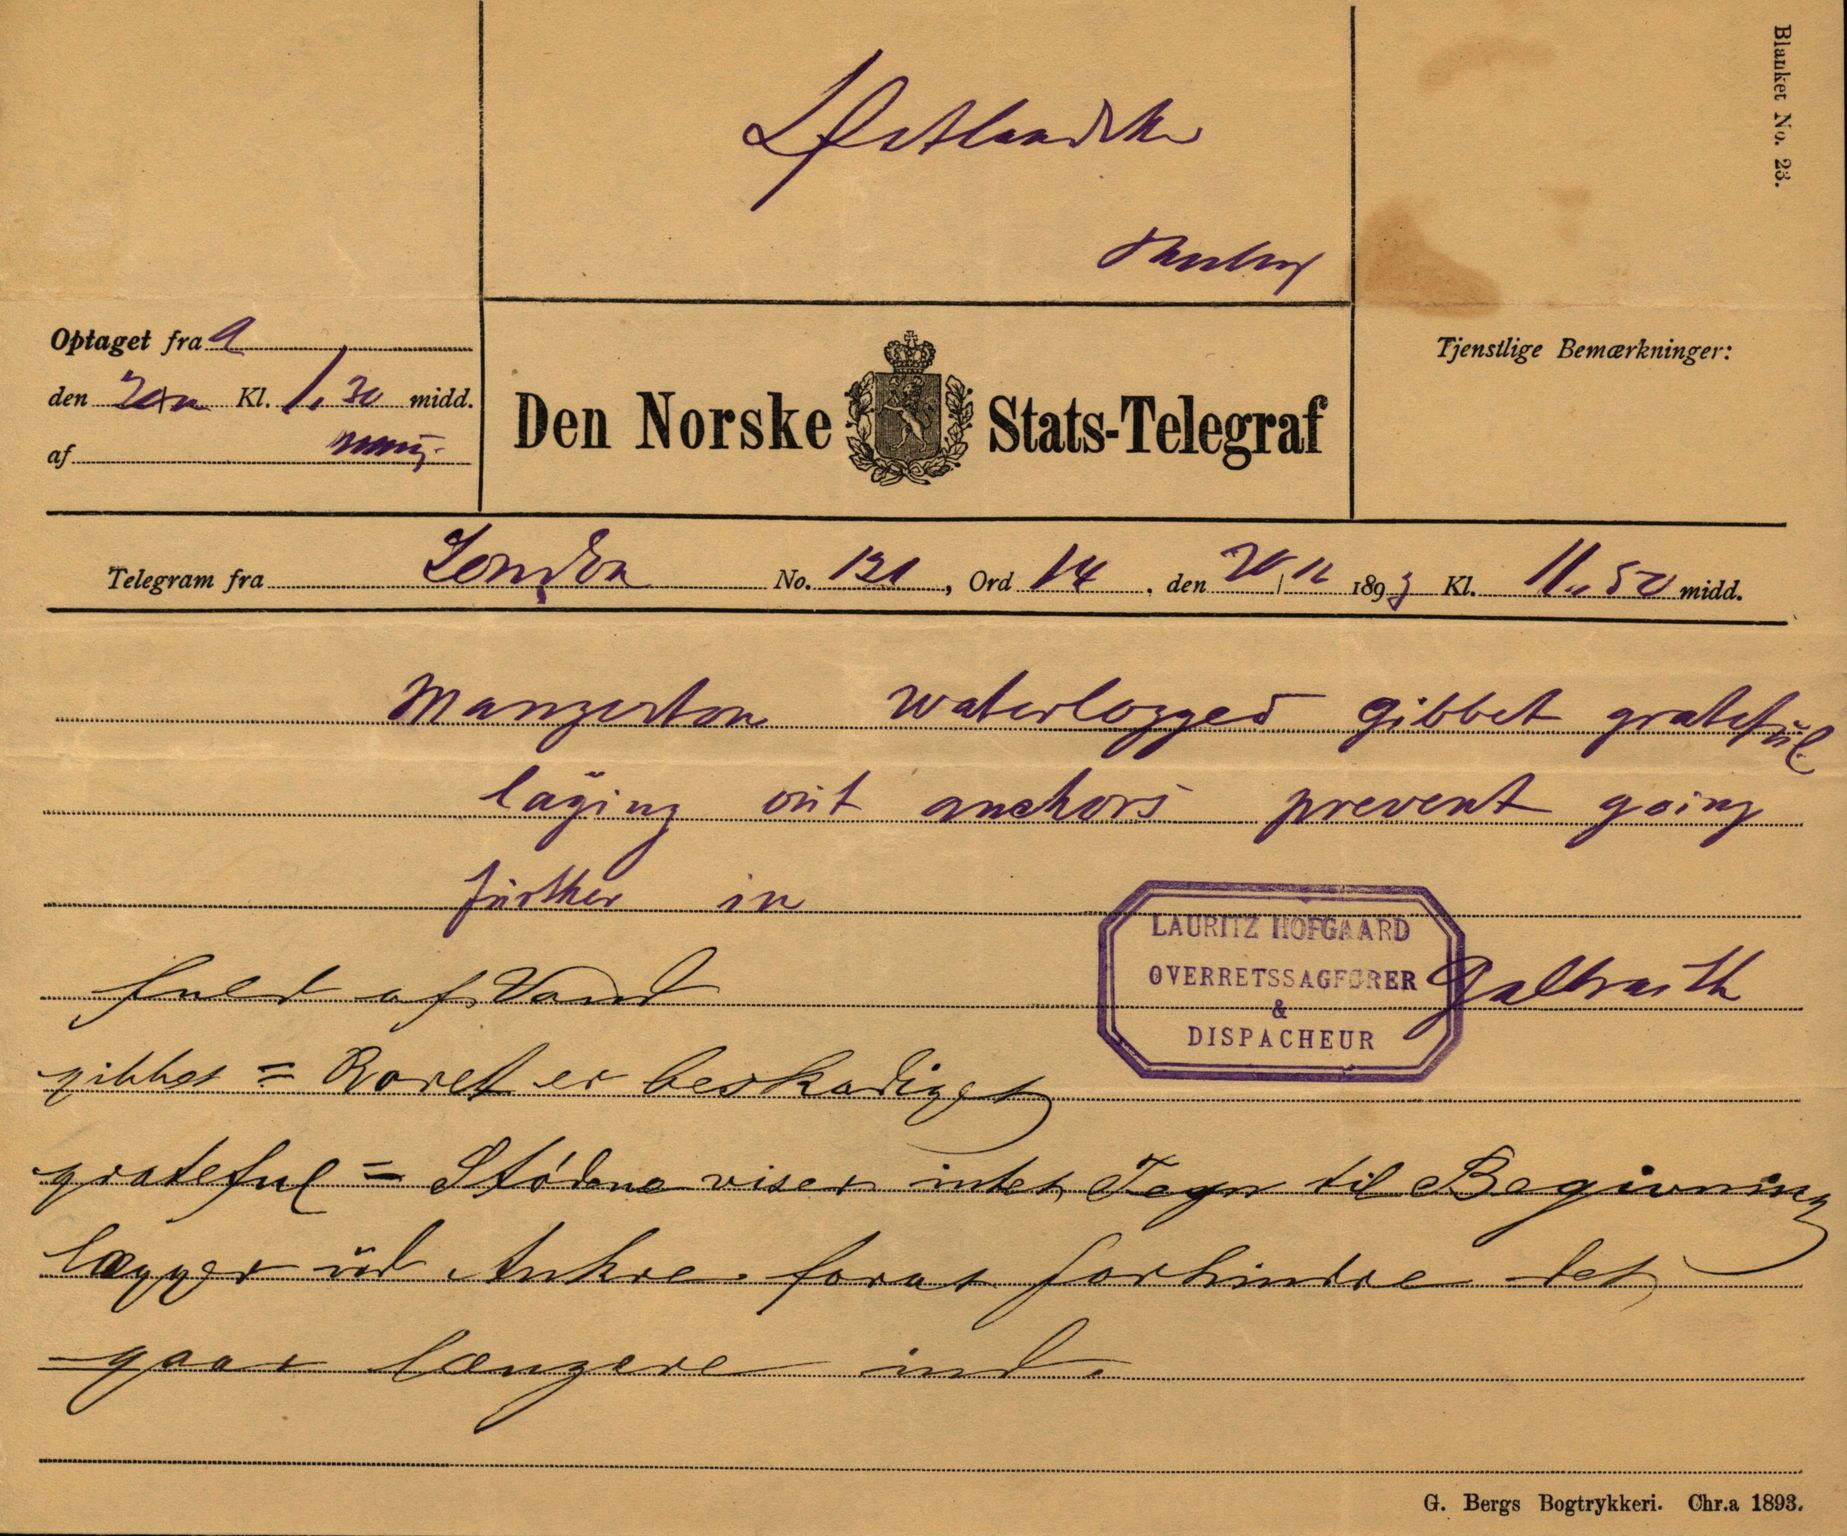 Blanket No. 23.
Østlandske
Optaget fra a
den 20/11 Kl. 1.30 midd.
af
Den Norske Stats-Telegraf
Tjenstlige Bemærkninger:
Telegram fra London No. 131, Ord 14, den 20/11 1893 Kl. 11.50 midd.
Mangerton waterlogged gibbet grateful
laying out anchors prevent going
further in
Galbraith
LAURITZ HOFGAARD
OVERRETSSAGFØRER
&
DISPACHEUR
fuld af Vand
gibbet = Roret er beskadiget
grateful = Stødene viser intet Tegn til Begivning
lægger ud Ankre forat forhindre det
gaar længere ind.
G. Bergs Bogtrykkeri. Chr.a 1893.